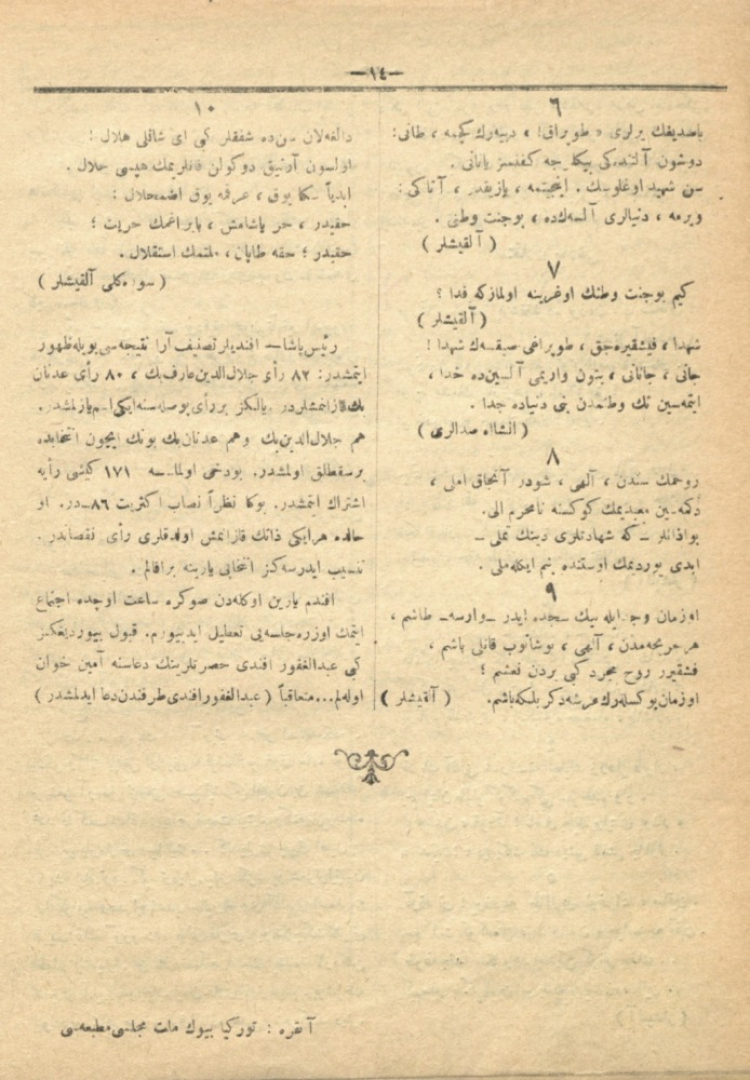 —١٤—
٦
باصدیغك یرلری « طوپراق! » دییه‌رك كچمه ، طانی:
دوشون آلتنده‌كی بیكلرجه كفنسز یاتانی .
سن شهید اوغلوسك . اینجیتمه ، یازیقدر ، آتاكی :
ویرمه ، دنیالری آلسه‌كده ، بوجنت وطنی .
( آلقیشلر )
٧
كیم بوجنت وطنك اوغرینه اولمازكه فدا ؟
( آلقیشلر )
شهدا ، فیشقیره‌جق ، طوپراغی صیقسه‌ك شهدا !
جانی ، جانانی ، بتون واریمی آلسین‌ده خدا ،
ایتمه‌سین تك وطنمدن بنی دنیاده جدا .
( انشاالله صدالری )
٨
روحمك سندن ، آلهی ، شودر آنجاق املی ،
دكمه‌سین معبدیمك كوكسنه نامحرم الی.
بواذانلر ـ كه شهادتلری دینك تملی ـ
ابدی یوردیمك اوستنده بنم ایكله‌ملی .
٩
اوزمان وجدایله بیك سجده ایدر ـ وارسه ـ طاشم ،
هر جریحه‌مدن ، آلهی ، بوشانوب قانلی یاشم ،
فشقیرر روح مجرد كبی یردن نعشم ؛
اوزمان یوكسله‌رك عرشه دكر بلكه باشم. ( آلقیشلر )
١٠
دالغه‌لان سن‌ده شفقلر كبی ای شانلی هلال !
اولسون آرتیق دوكولن قانلریمك هپسی حلال .
ابدیاً سكا یوق ، عرقمه یوق اضمحلال :
حقیدر ، حر یاشامش ، بایراغمك حریت ؛
حقیدر ؛ حقه طاپان ، ملتمك استقلال .
( سوره‌كلی آلقیشلر )
رئیس پاشا — افندیلر تصنیف آرا نتیجه‌سی بویله ظهور
ایتمشدر: ٨٢ رأی جلال‌الدین عارف بك ، ٨٠ رأی عدنان
بك قازانمشلردر. یالكز بر رأی پوصله‌سنه ایكی اسم یازلمشدر.
هم جلال‌الدین بك وهم عدنان بك بونك ایچون انتخابده
بر سقطلق اولمشدر. بودخی اولماسه ١٧١ كیشی رأیه
اشتراك اتمشدر. بوكا نظراً نصاب اكثریت ٨٦ـدر. او
حالده هر ایكی ذاتك قازانمش اولدقلری رأی نقصاندر .
تنسیب ایدرسه‌كز انتخابی یارینه براقالم .
افندم یارین اوكله‌دن صوكره ساعت اوچده اجتماع
ایتمك اوزره جلسه‌یی تعطیل ایدییورم. قبول بیوردیغكز
كبی عبدالغفور افندی حضرتلرینك دعاسنه آمین خوان
اوله‌لم... متعاقباً ( عبدالغفور افندی طرفندن دعا ایدلمشدر )
آنقره : توركیا بیوك ملت مجلسی مطبعه‌سی